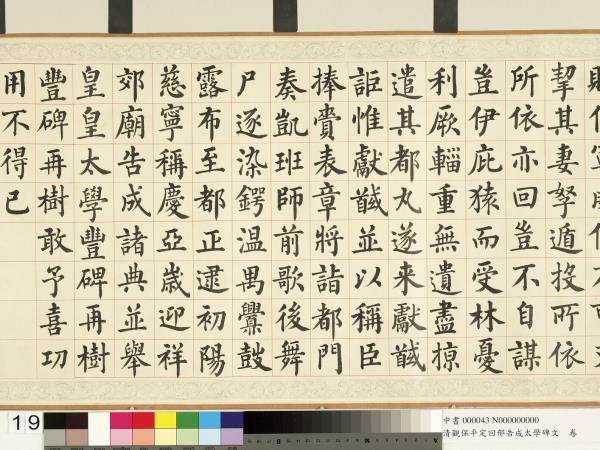 挈其妻孥遁投所依
所依亦回豈不自謀
豈伊庇猿而受林憂
利厥輜重無遺盡掠
遣其都丸遂来獻馘
詎惟獻馘並以稱臣
捧賫表章將詣都門
奏凱班師前歌後舞
尸逐染鍔温禺釁鼓
露布至都正逮初陽
慈寧稱慶亞歲迎祥
郊廟告成諸典並舉
皇皇太學豐碑再樹
豐碑再樹敢予喜功
用不得已
19
中書 000043 N000000000
清觀保平定回部告成太學碑文 卷